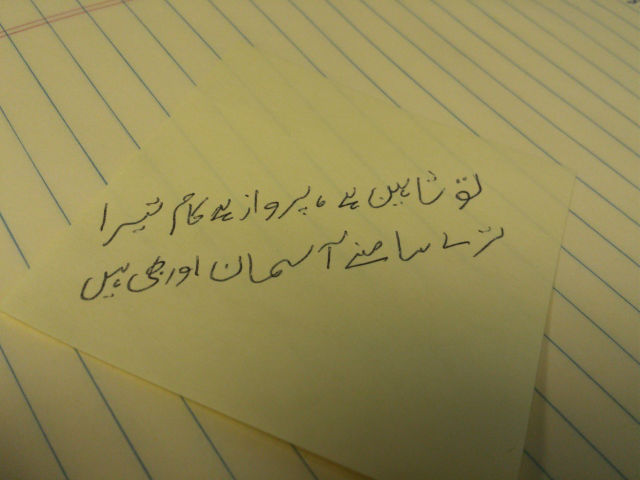 تو شاہین ہے، پرواز ہے کام تیرا
ترے سامنے آسمان اور بھی ہیں